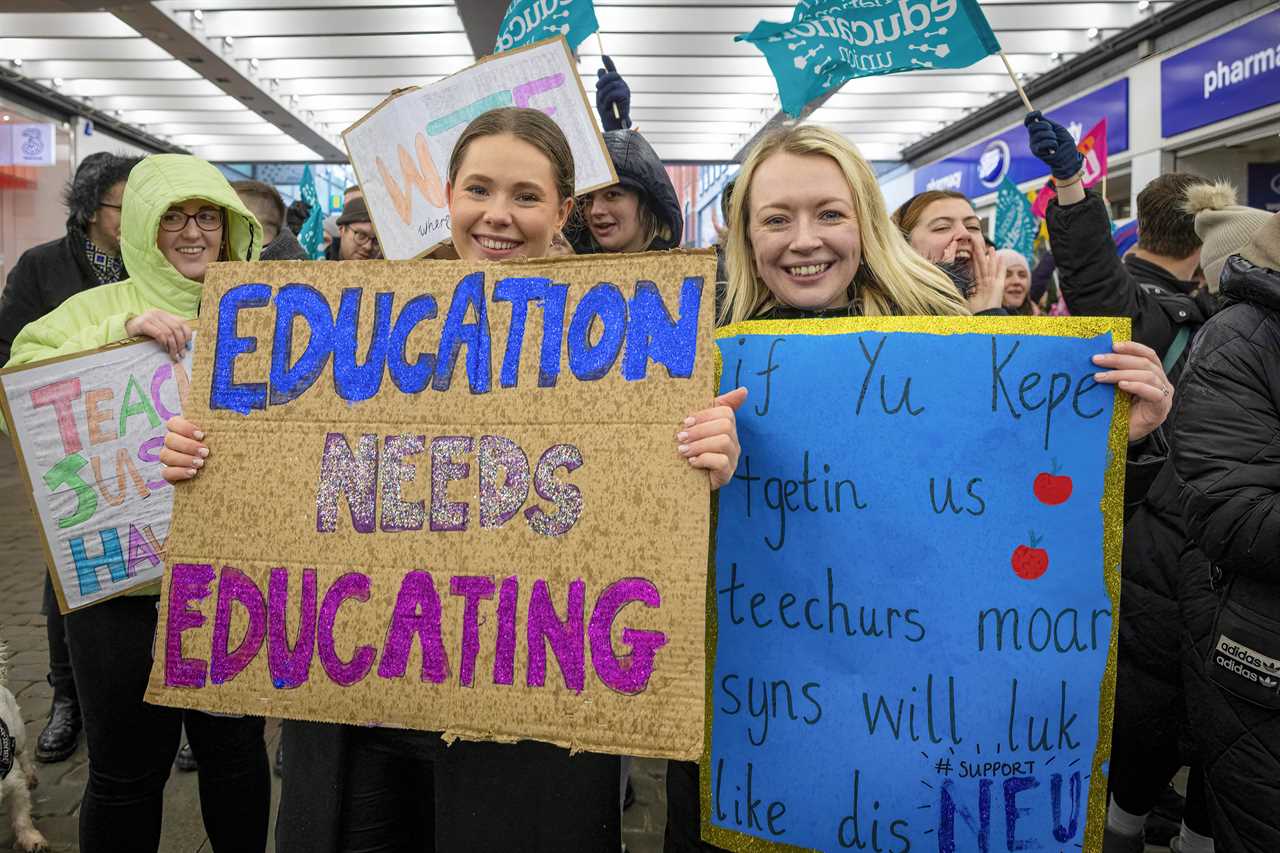 education
union
education
union
pharma
WE
where
TEAC
JUS
HA
EDUCATION
NEEDS
EDUCATING
if Yu Kepe
+getin us
teechurs moar
syns will luk
like dis
#SUPPORT
NEU
adidas
adidas